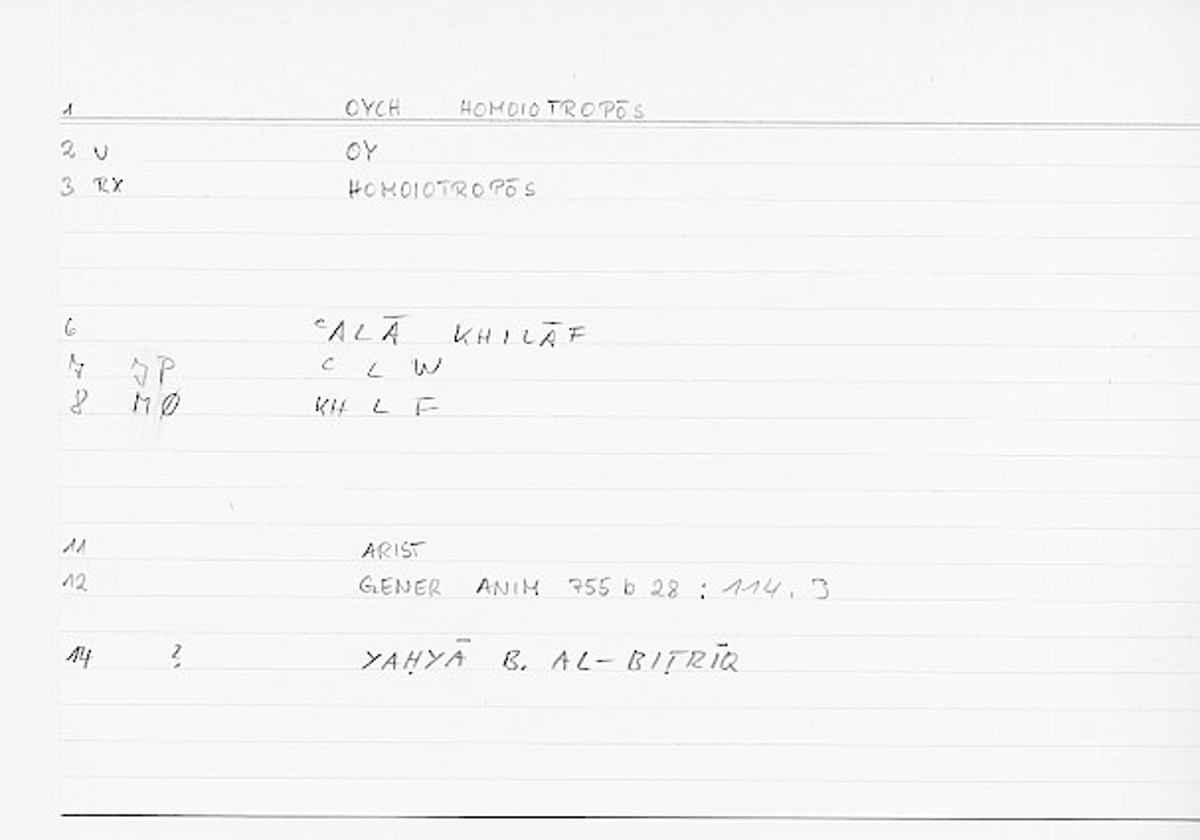 1 OYCH HOMOIOTROPŌS
2 U OY
3 RX HOMOIOTROPŌS
6 ᶜALĀ KHILĀF
7 JP ᶜ L W
8 MØ KH L F
11 ARIST
12 GENER ANIM 755 b 28 : 114.3
14 ? YAḤYĀ B. AL-BIṬRĪQ